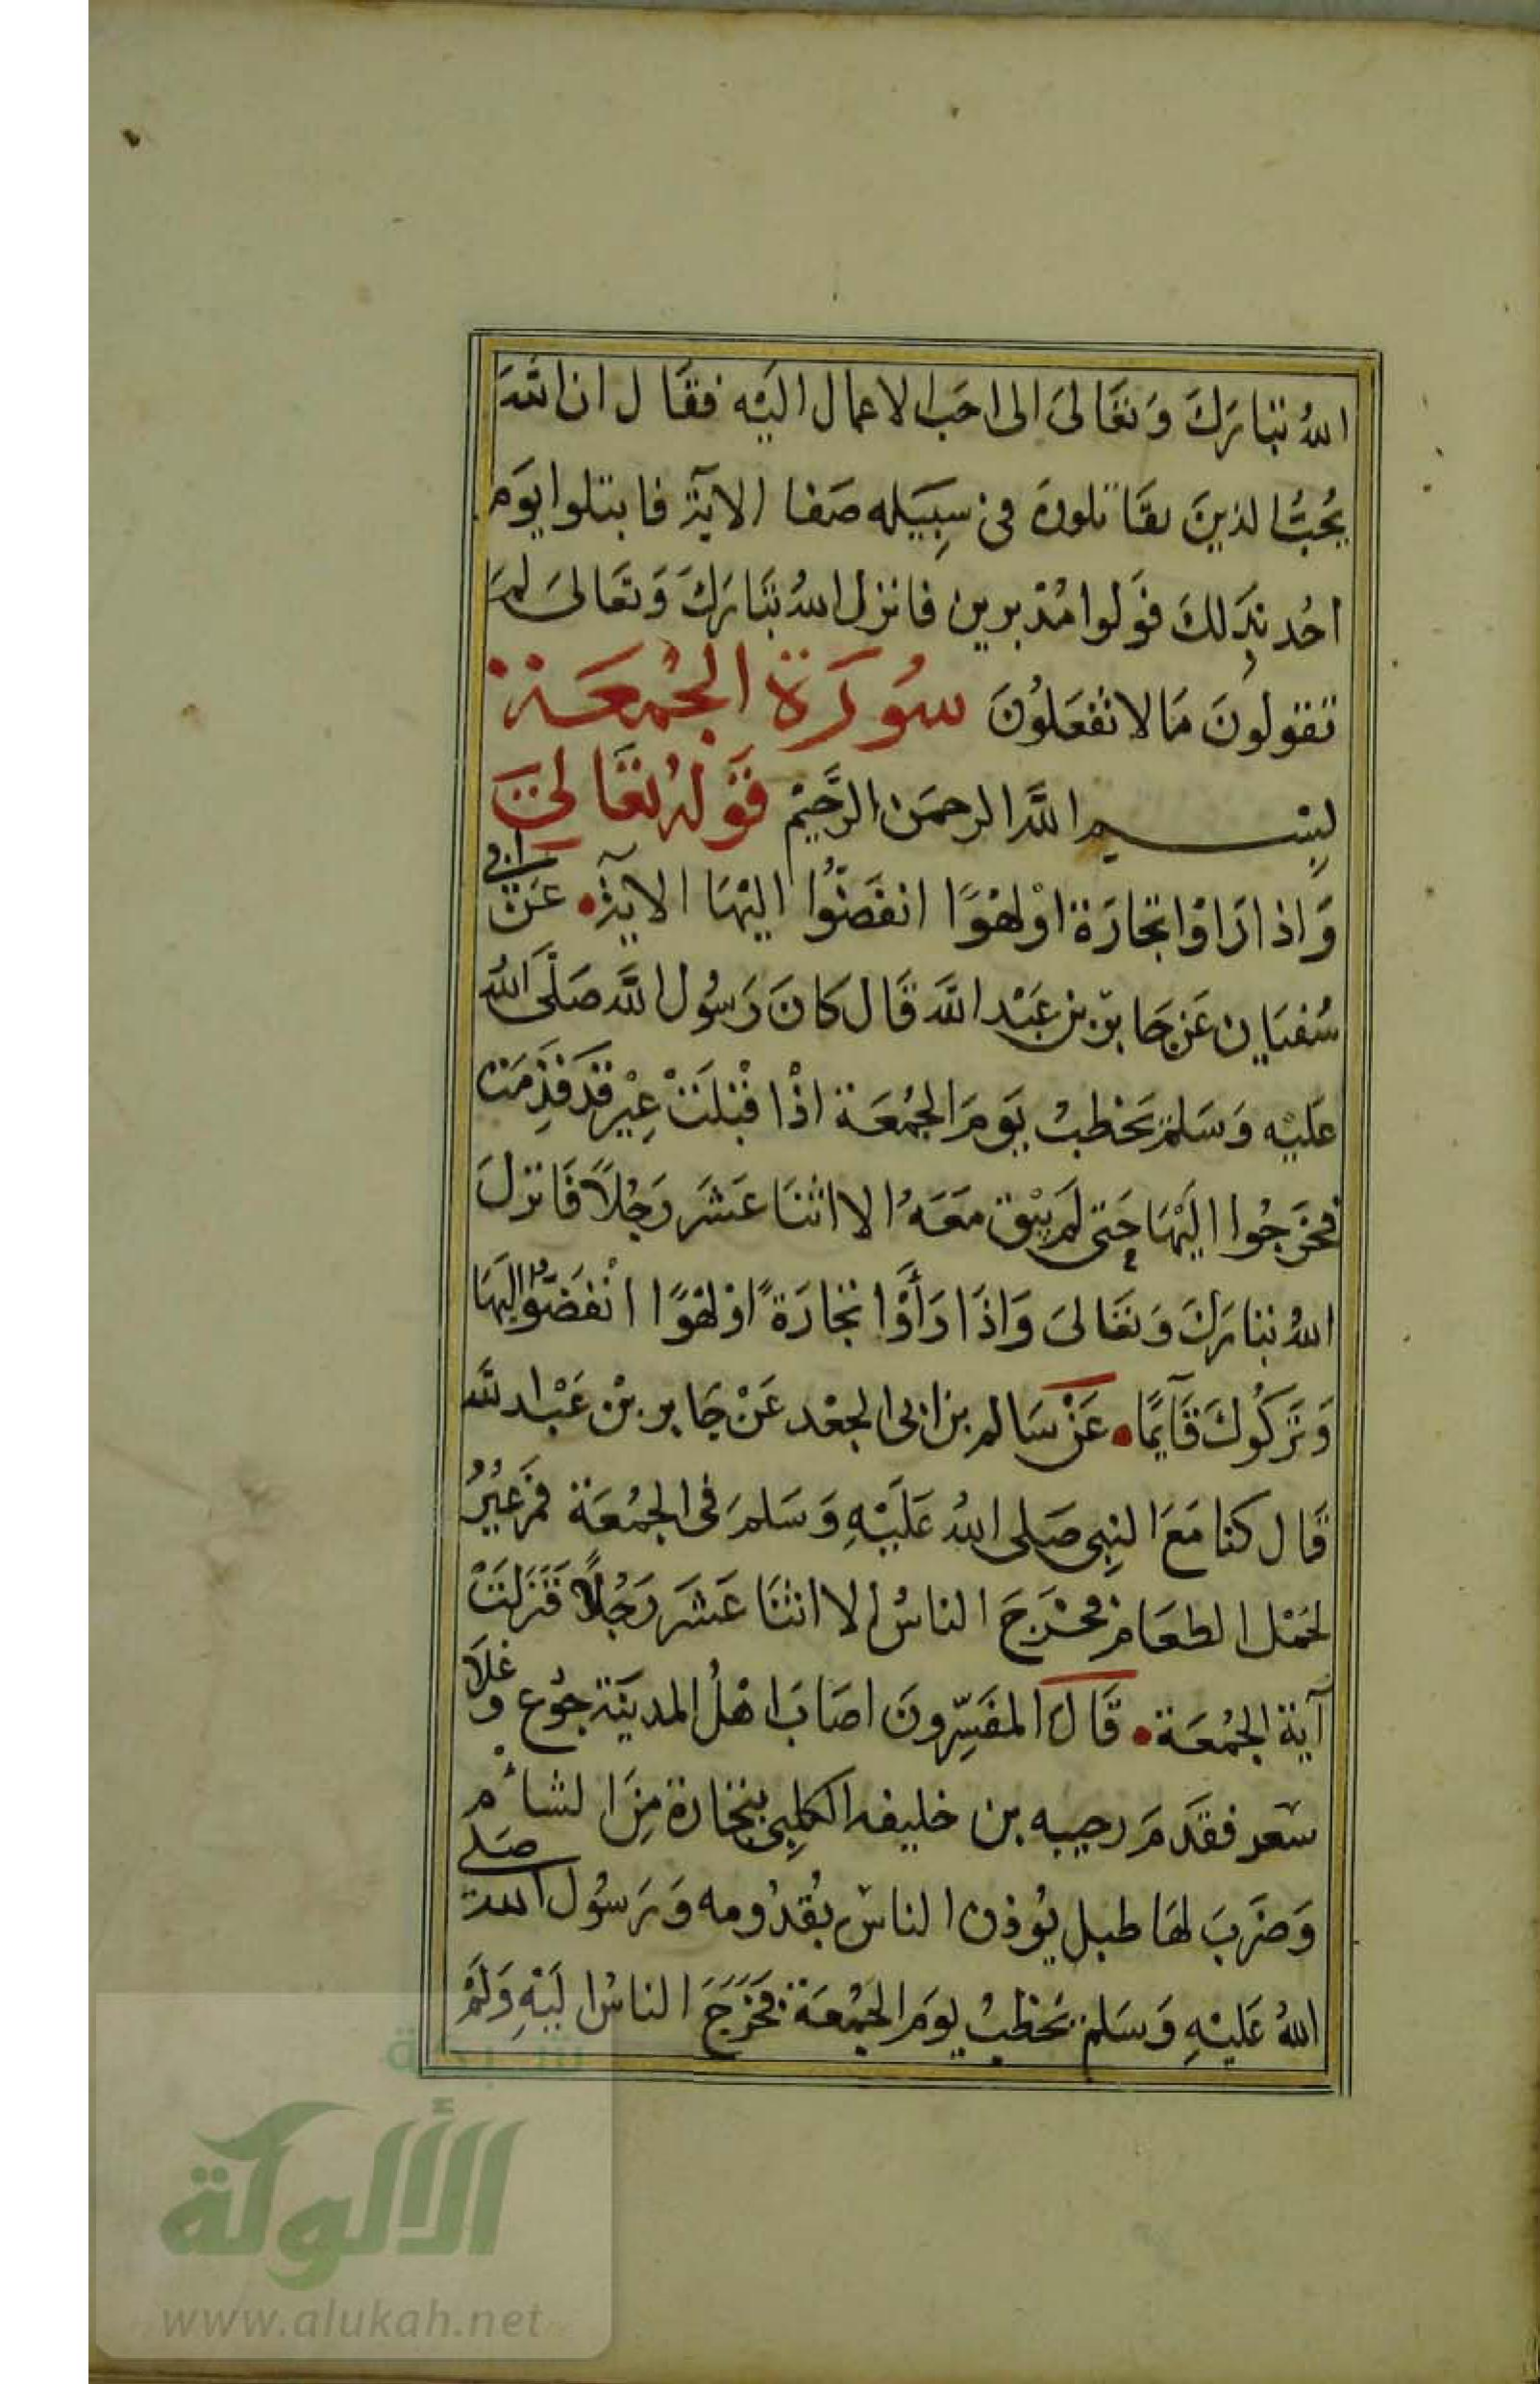 الله تبارك وتعالى الى احب الاعمال اليه فقال ان الله
يحب الذين يقاتلون في سبيله صفا الاية فابتلوا يوم
احد بذلك فولوا مدبرين فانزل الله تبارك وتعالى لم
تقولون ما لا تفعلون سورة الجمعة
بسم الله الرحمن الرحيم قوله تعالى
واذا راوا تجارة او لهوا انفضوا اليها الاية عن ابي
سفيان عن جابر بن عبد الله قال كان رسول الله صلى الله
عليه وسلم يخطب يوم الجمعة اذ اقبلت عير قد قدمت
فخرجوا اليها حتى لم يبق معه الا اثنا عشر رجلا فانزل
الله تبارك وتعالى واذا رأوا تجارة او لهوا انفضوا اليها
وتركوك قآيما عن سالم بن ابي الجعد عن جابر بن عبد الله
قال كنا مع النبي صلى الله عليه وسلم في الجمعة فمر عير
لحمل الطعام فخرج الناس الا اثنا عشر رجلا فنزلت
آية الجمعة قال المفسرون اصاب اهل المدينة جوع وغلا
سعر فقدم دحيه بن خليفه الكلبي بتجارة من الشام
وضرب لها طبل يوذن الناس بقدومه ورسول الله صلى
الله عليه وسلم يخطب يوم الجمعة فخرج الناس اليه ولم
شبكة
الألوكة
www.alukah.net